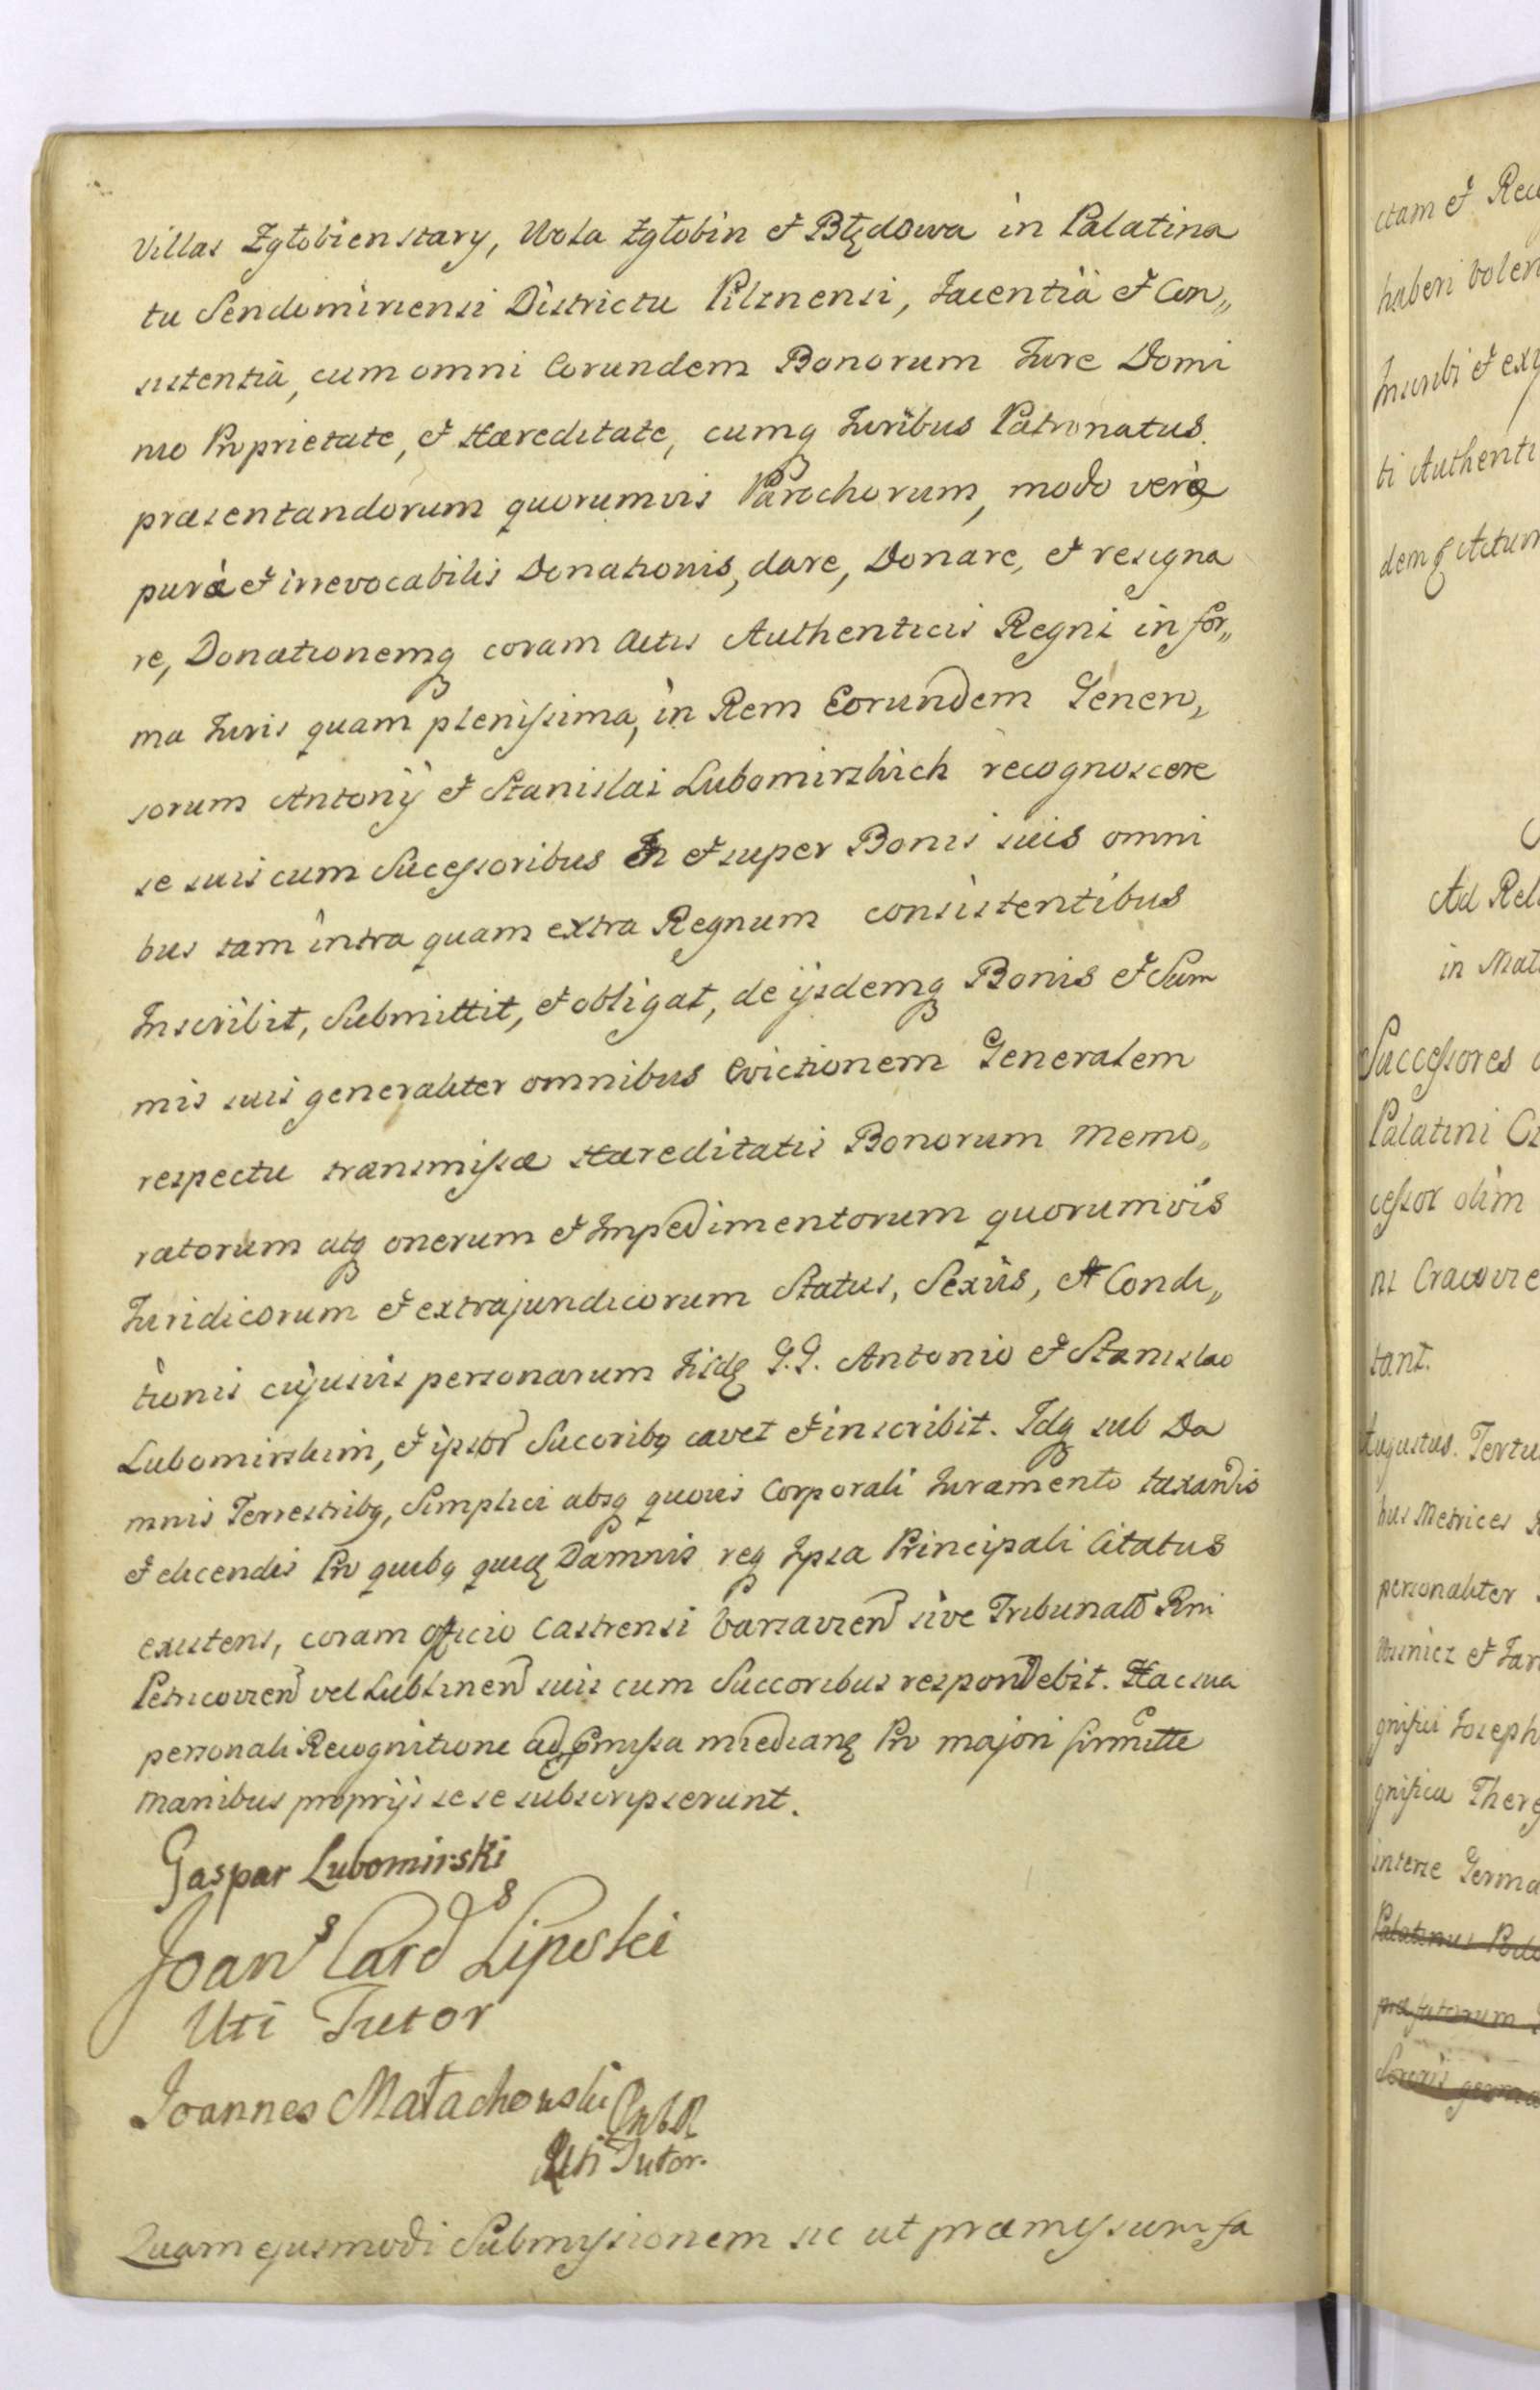 Villas Zgłobien stary, Wola Zgłobin et Błędowa in Palatina
tu Sendomiriensi Districtu Pilznensi, Jacentia et Con„
sistentia, cum omni Eorundem Bonorum Jure Domi
nio Proprietate, et Hæreditate, cumq Juribus Patronatus
præsentandorum quorumvis Parochorum, modo veræ
puræ et irrevocabilis Donationis, dare, Donare, et resigna
re, Donationemq coram Actis Authenticis Regni in for„
ma Juris quam plenissima, in Rem Eorundem Gener„
sorum Antonij et Stanislai Lubomirskich recognoscere
se suis cum Sucessoribus In et super Bonis suis omni
bus tam intra quam extra Regnum consistentibus
Inscribit, Submittit, et obligat, de ijsdemq Bonis et Sum
mis suis generaliter omnibus Evictionem Generalem
respectu transmissæ Hæreditatis Bonorum memo„
ratorum atq onerum et Impedimentorum quorumvis
Juridicorum et extrajuridicorum Status, Sexus, et Condi„
tionis cujusvis personarum Jisdq G.G. Antonio et Stanislao
Lubomirskim, et ipsor Sucoribq cavet et inscribit. Idq sub Da
mnis Terrestribq, Simplici absq quovis Corporali Juramento taxandis
et dicendis Pro quibq quiq Damnis req Ipsa Principali Citatus
existens, coram officio Castrensi Varsavien sive Tribunali Rni
Petricovien vel Lublinen suis cum Succoribus respondebit. Hac sua
personali Recognitione ad pmissa mediang Pro majori firmitte
manibus proprijs se se subscripserunt.
Gaspar Lubomirski
Joans Card Lipski
Uti Tutor
Joannes Małachowski
Uti Tutor.
Quam ejusmodi Submissionem sic ut præmissum fa
ctam et Rec
haberi volen
Inscribi et ex
ti Authenti
demq Actum
Ad Rel
in Mat
Successores
Palatini
cessor olim
ni Cracovie
tant.
Augustus Tertu
bus Metrices
personaliter
Wisnicz et Jar
gnifici Joseph
gnifica There
interze Germa
Palatinus Podo
præfatorum
Sororis germa